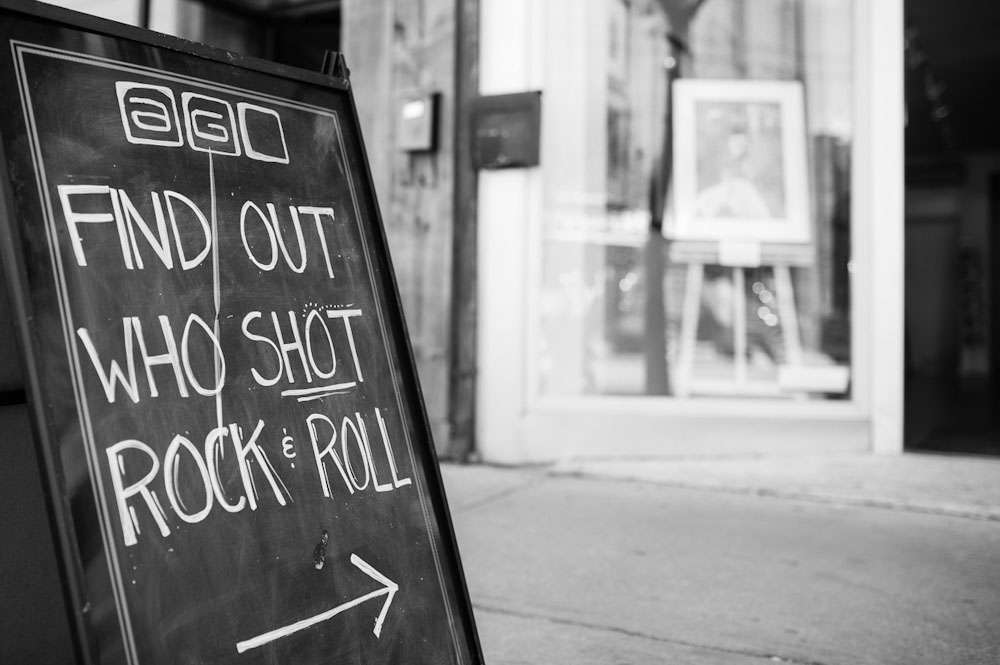 aG
FIND OUT
WHO SHOT
ROCK & ROLL